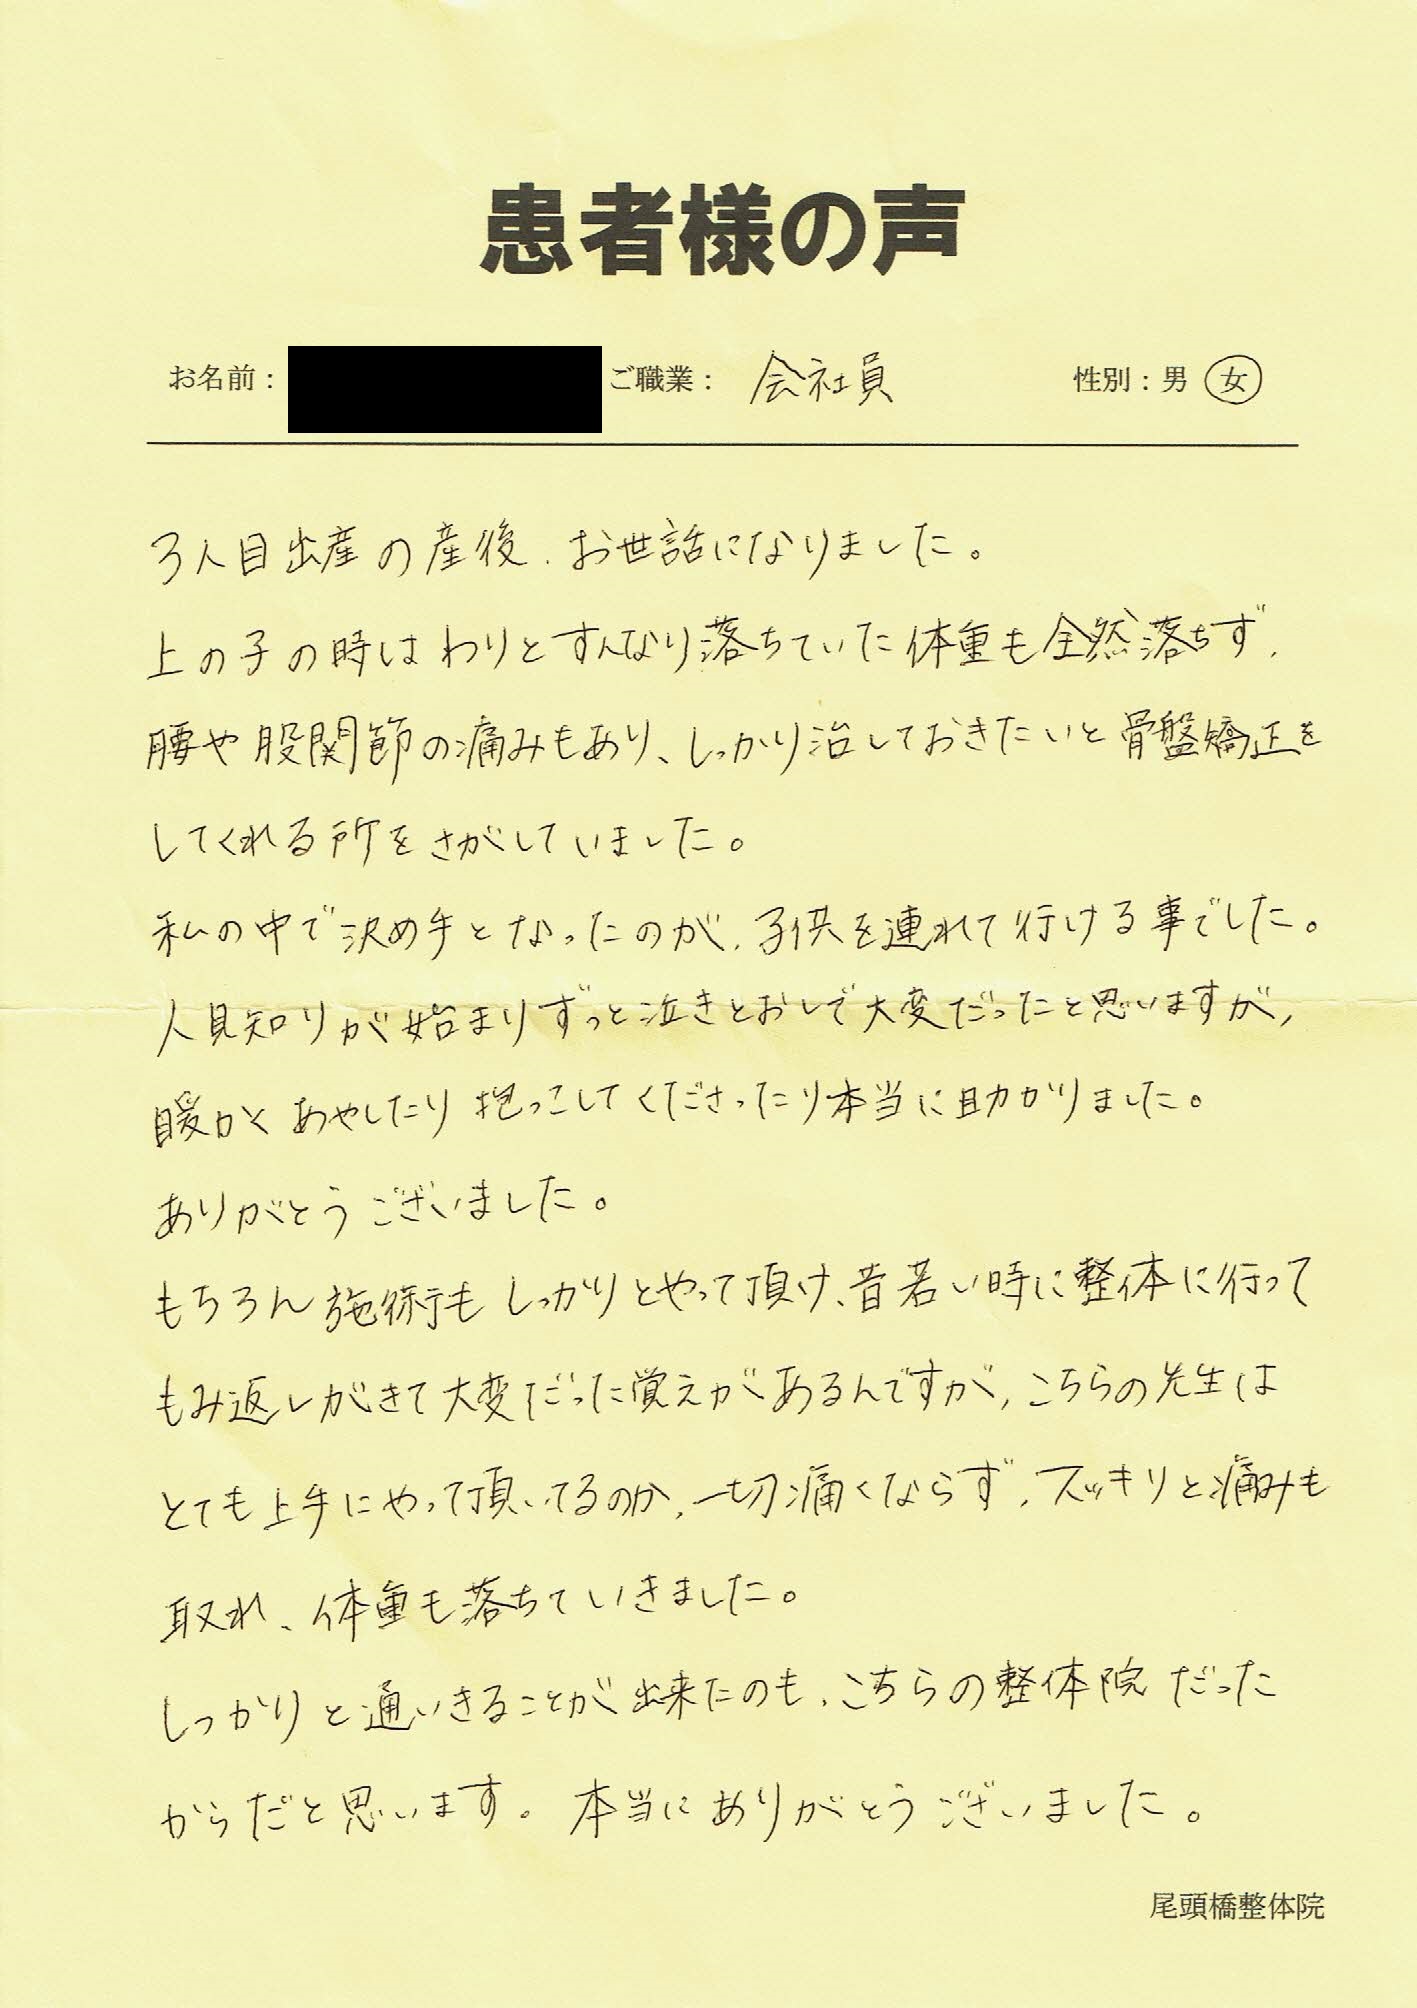 患者様の声
お名前： ご職業： 会社員 性別：男 女
3人目出産の産後、お世話になりました。
上の子の時はわりとすんなり落ちていた体重も全然落ちず、
腰や股関節の痛みもあり、しっかり治しておきたいと骨盤矯正を
してくれる所をさがしていました。
私の中で決め手となったのが、子供を連れて行ける事でした。
人見知りが始まりずっと泣きとおしで大変だったと思いますが、
暖かくあやしたり抱っこしてくださったり本当に助かりました。
ありがとうございました。
もちろん施術もしっかりとやって頂け、昔若い時に整体に行って
もみ返しがきて大変だった覚えがあるんですが、こちらの先生は
とても上手にやって頂いてるのか、一切痛くならず、スッキリと痛みも
取れ、体重も落ちていきました。
しっかりと通いきることが出来たのも、こちらの整体院だった
からだと思います。本当にありがとうございました。
尾頭橋整体院